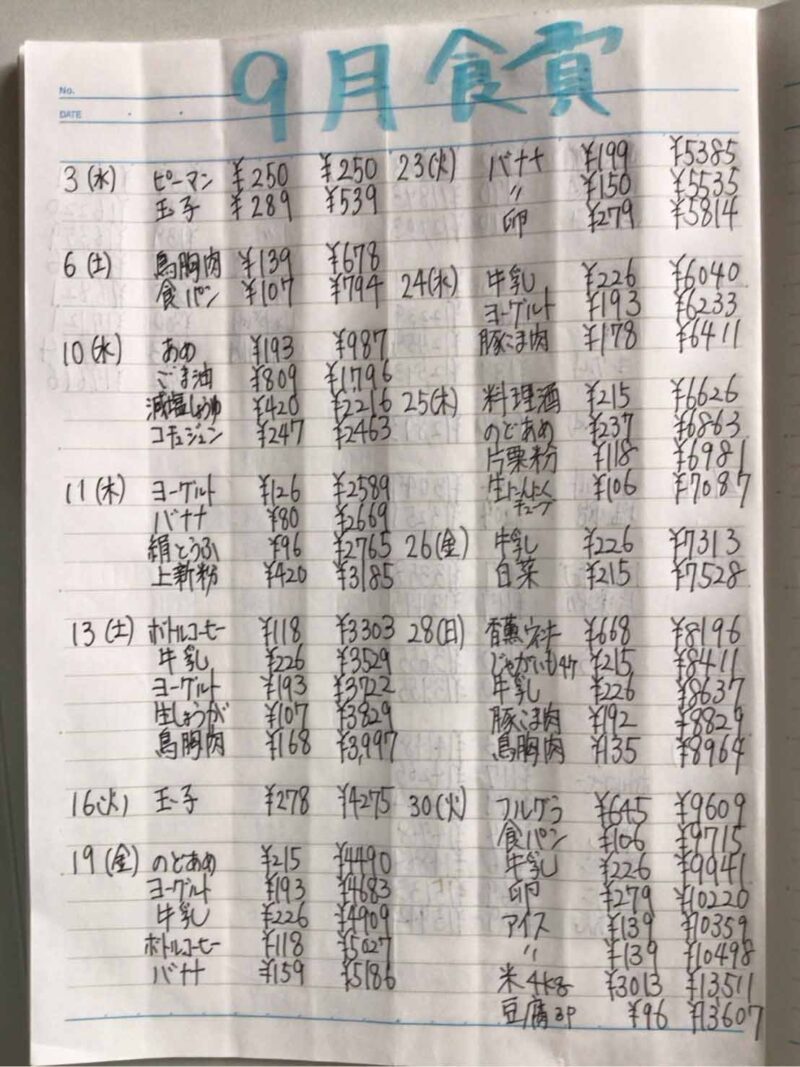 No.
DATE
9月食費
3(水) ピーマン ¥250 ¥250
玉子 ¥289 ¥539
6(土) 鳥胸肉 ¥139 ¥678
食パン ¥107 ¥794
10(水) あめ ¥193 ¥987
ごま油 ¥809 ¥1796
減塩しょうゆ ¥420 ¥2216
コチュジュン ¥247 ¥2463
11(木) ヨーグルト ¥126 ¥2589
バナナ ¥80 ¥2669
絹とうふ ¥96 ¥2765
上新粉 ¥420 ¥3185
13(土) ボトルコーヒー ¥118 ¥3303
牛乳 ¥226 ¥3529
ヨーグルト ¥193 ¥3722
生しょうが ¥107 ¥3829
鳥胸肉 ¥168 ¥3,997
16(火) 玉子 ¥278 ¥4275
19(金) のどあめ ¥215 ¥4490
ヨーグルト ¥193 ¥4683
牛乳 ¥226 ¥4909
ボトルコーヒー ¥118 ¥5027
バナナ ¥159 ¥5186
23(火) バナナ ¥199 ¥5385
〃 ¥150 ¥5535
卵 ¥279 ¥5814
24(水) 牛乳 ¥226 ¥6040
ヨーグルト ¥193 ¥6233
豚こま肉 ¥178 ¥6411
25(木) 料理酒 ¥215 ¥6626
のどあめ ¥237 ¥6863
片栗粉 ¥118 ¥6981
生にんにく ¥106 ¥7087
チューブ
26(金) 牛乳 ¥226 ¥7313
白菜 ¥215 ¥7528
28(日) 香薫ウィンナー ¥668 ¥8196
じゃがいも4ケ ¥215 ¥8411
牛乳 ¥226 ¥8637
豚こま肉 ¥192 ¥8829
鳥胸肉 ¥135 ¥8964
30(火) フルグラ ¥645 ¥9609
食パン ¥106 ¥9715
牛乳 ¥226 ¥9941
卵 ¥279 ¥10220
アイス ¥139 ¥10359
〃 ¥139 ¥10498
米4kg ¥3013 ¥13511
豆腐3P ¥96 ¥13607